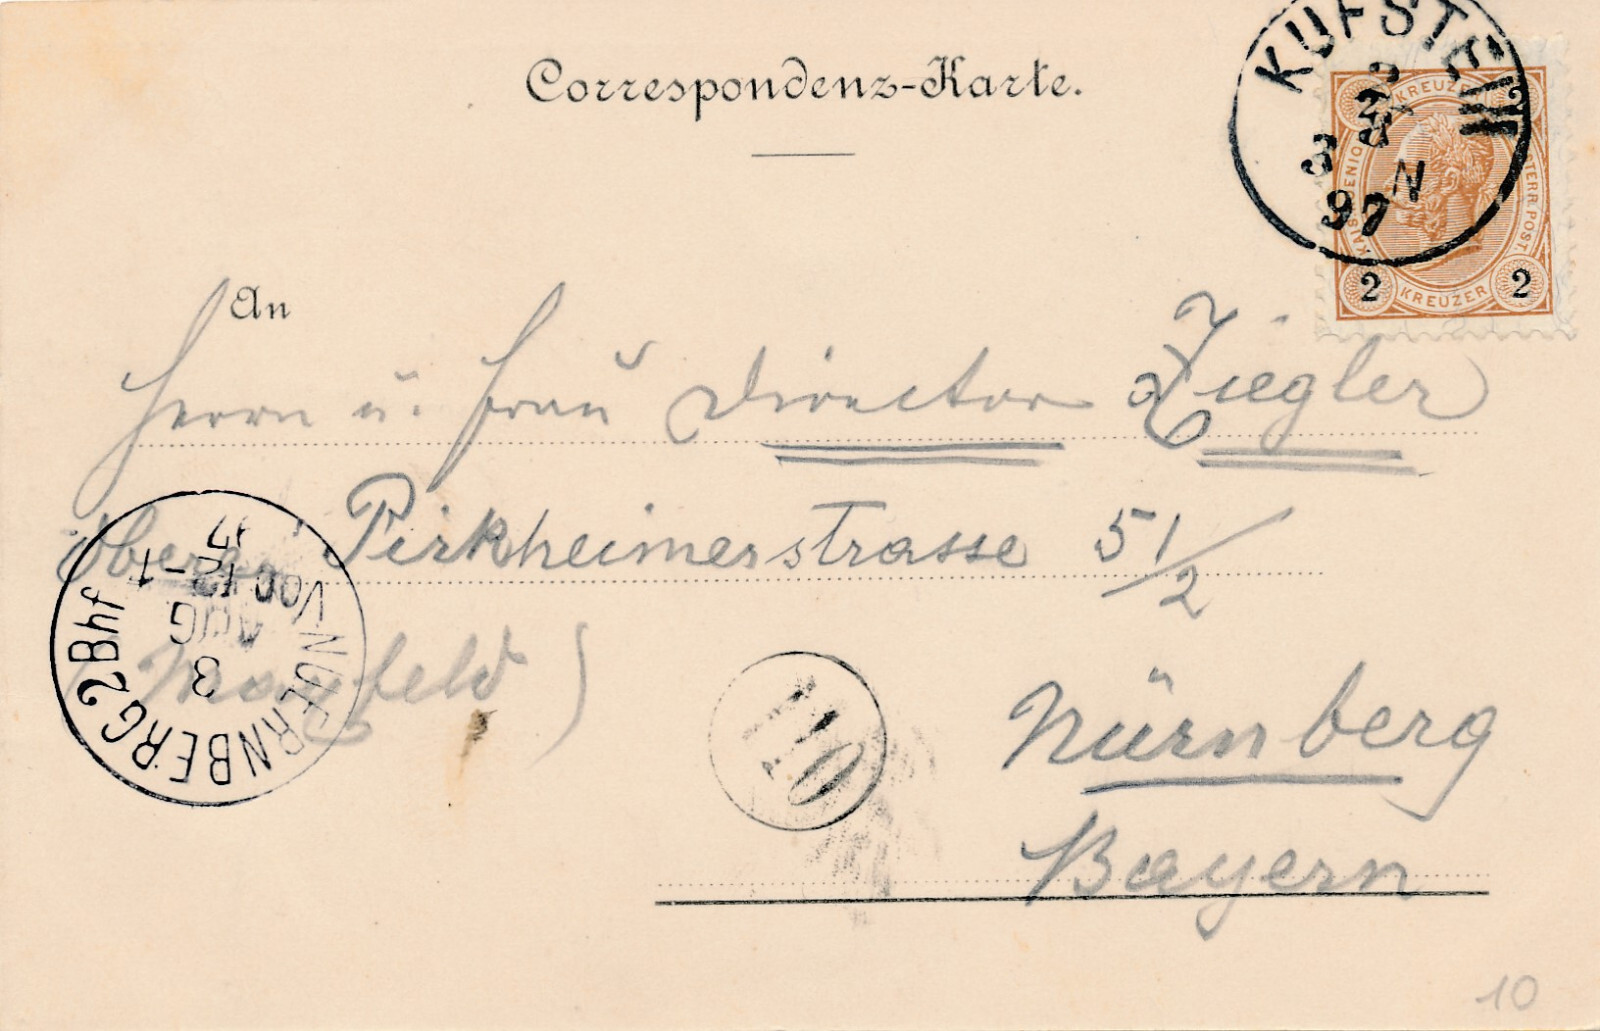 Correspondenz-Karte.
KUFSTEIN
2 8
3 N
97
KREUZER
KAIS. KOENIG. OESTERR. POST.
2 KREUZER 2
An
Herrn u. Frau Director Ziegler
Obere Pirkheimerstrasse 5 1/2
(Maxfeld)
Nürnberg
Bayern
NUERNBERG 2 Bhf
3
AUG
VOR 12-1
97
110
10